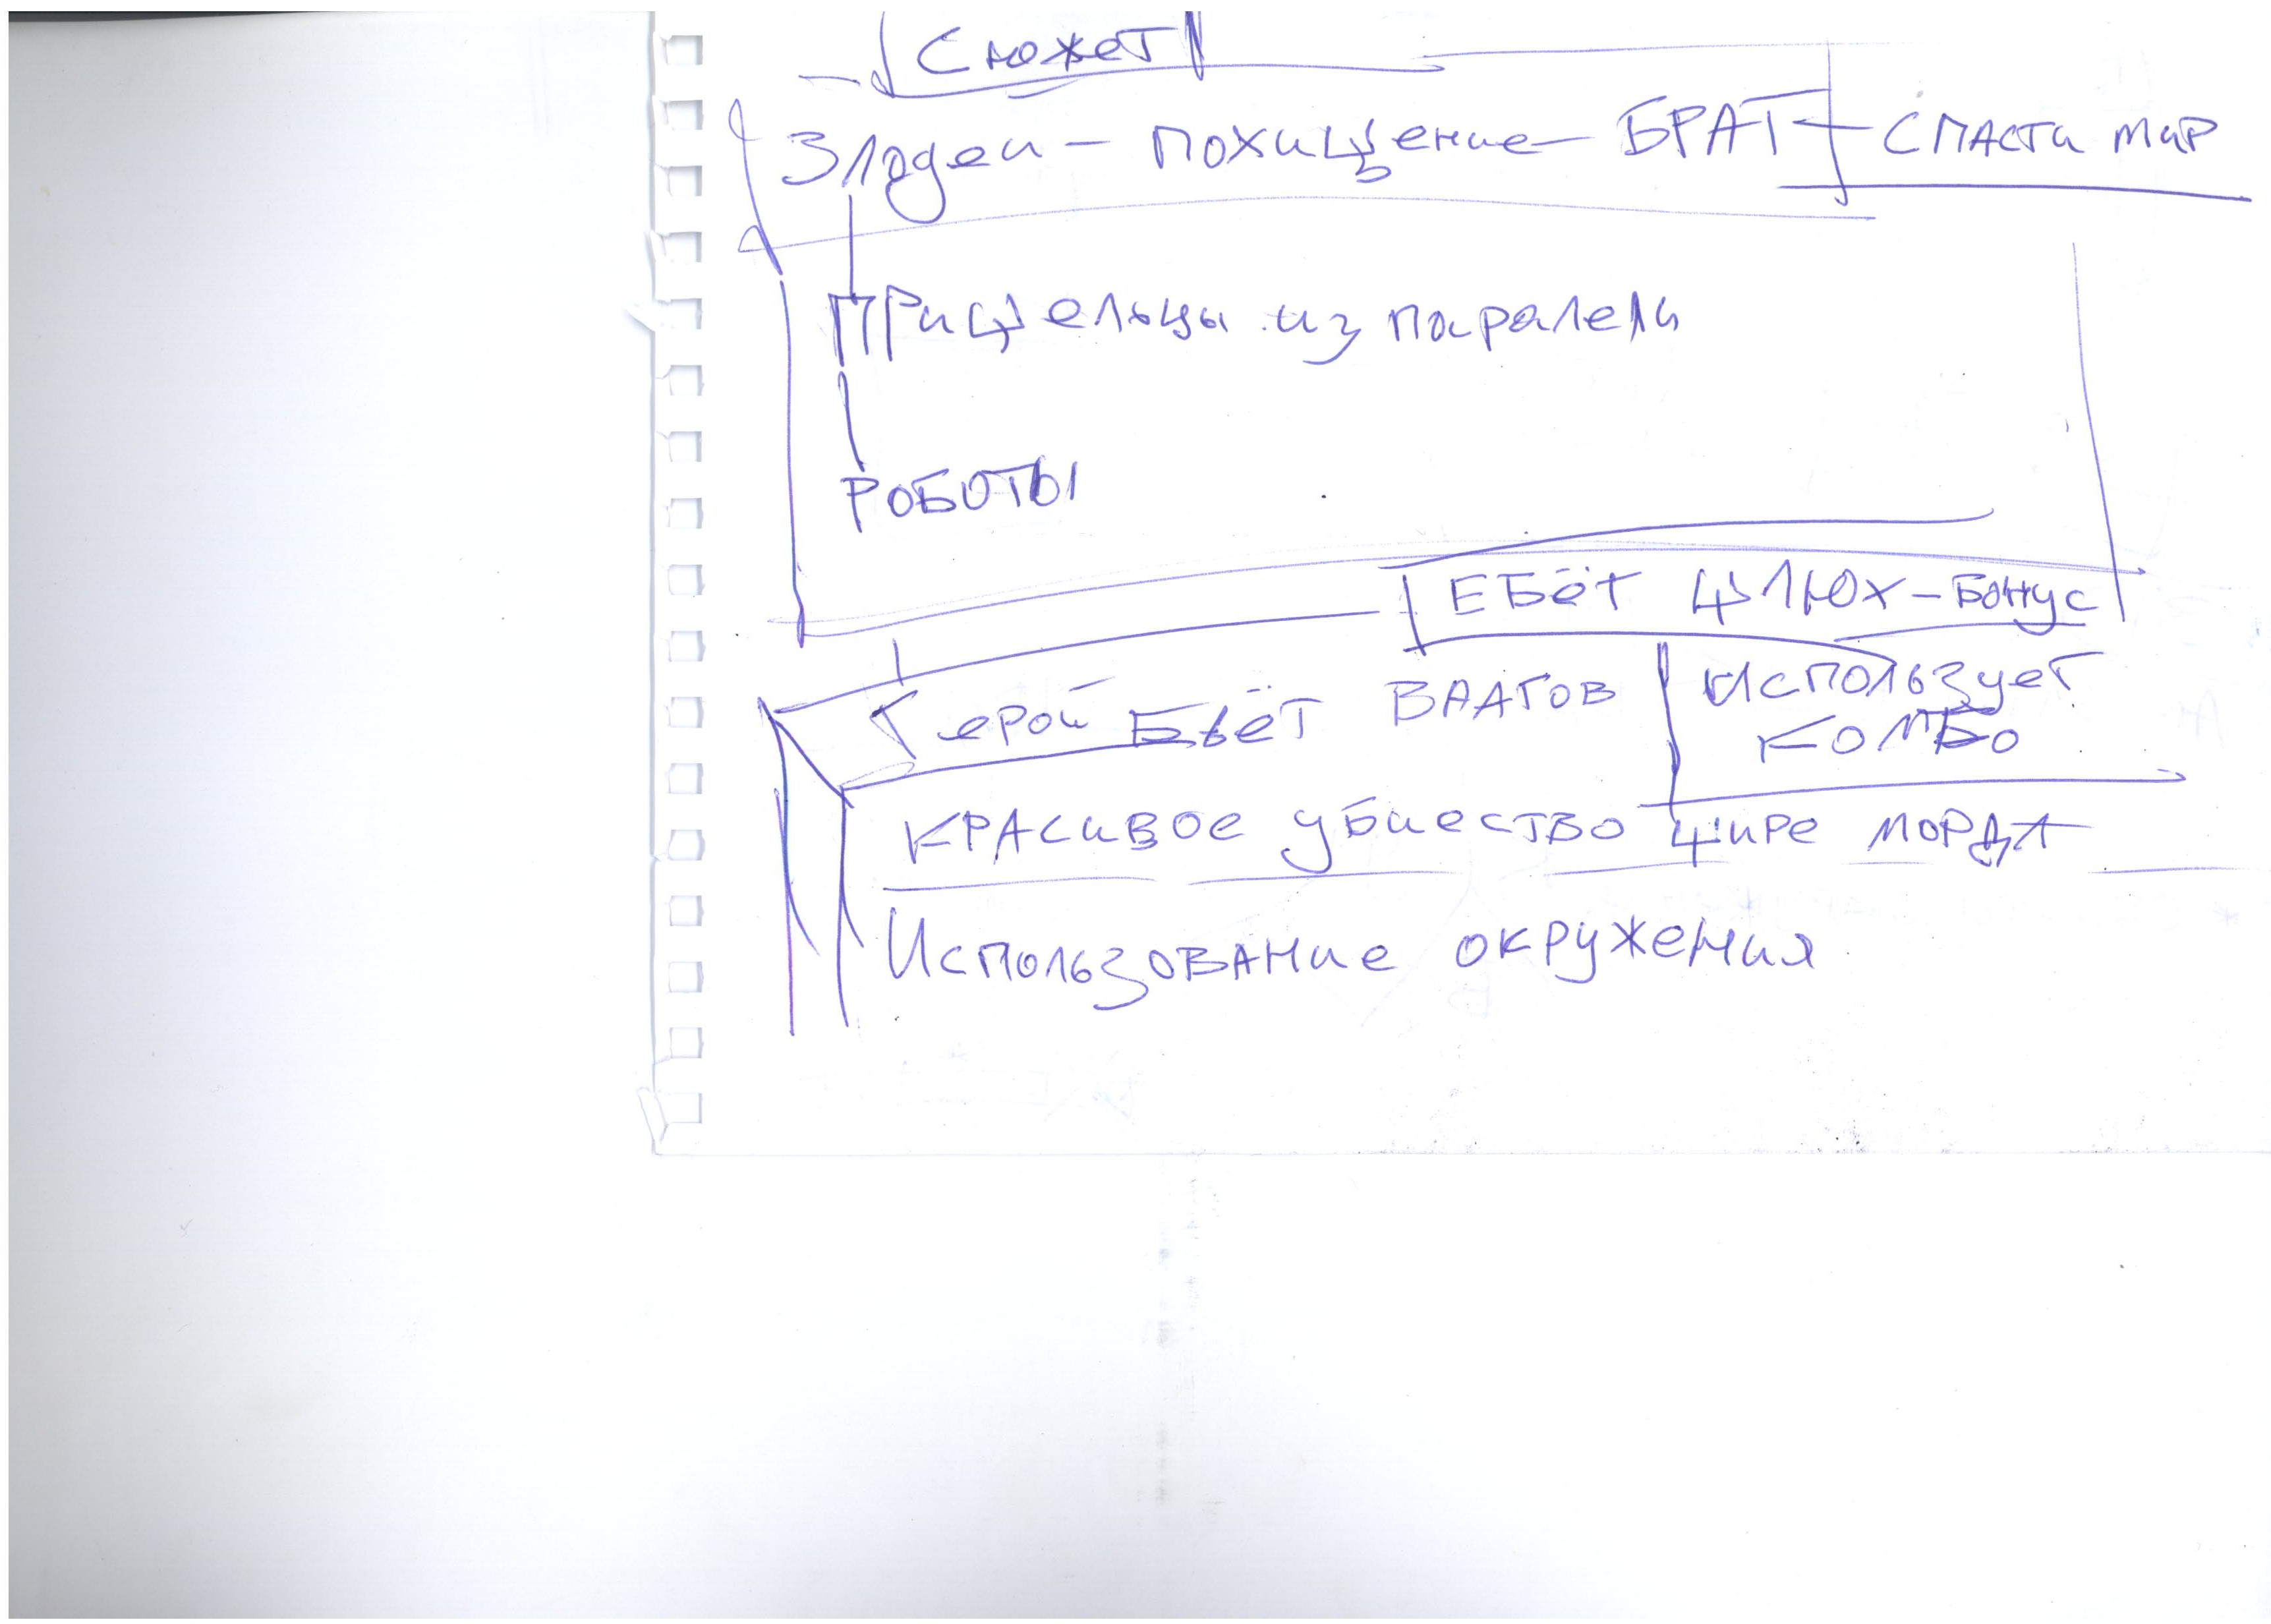 Сюжет
Злодеи - похищение - БРАТ - спасти мир
Пришельцы из паралели
РОБОТЫ
ЕБёт шлюх - Бонус
Герой Бьёт ВРАГОВ использует
комбо
КРАСИВОЕ убиество шире морда
Использование окружения